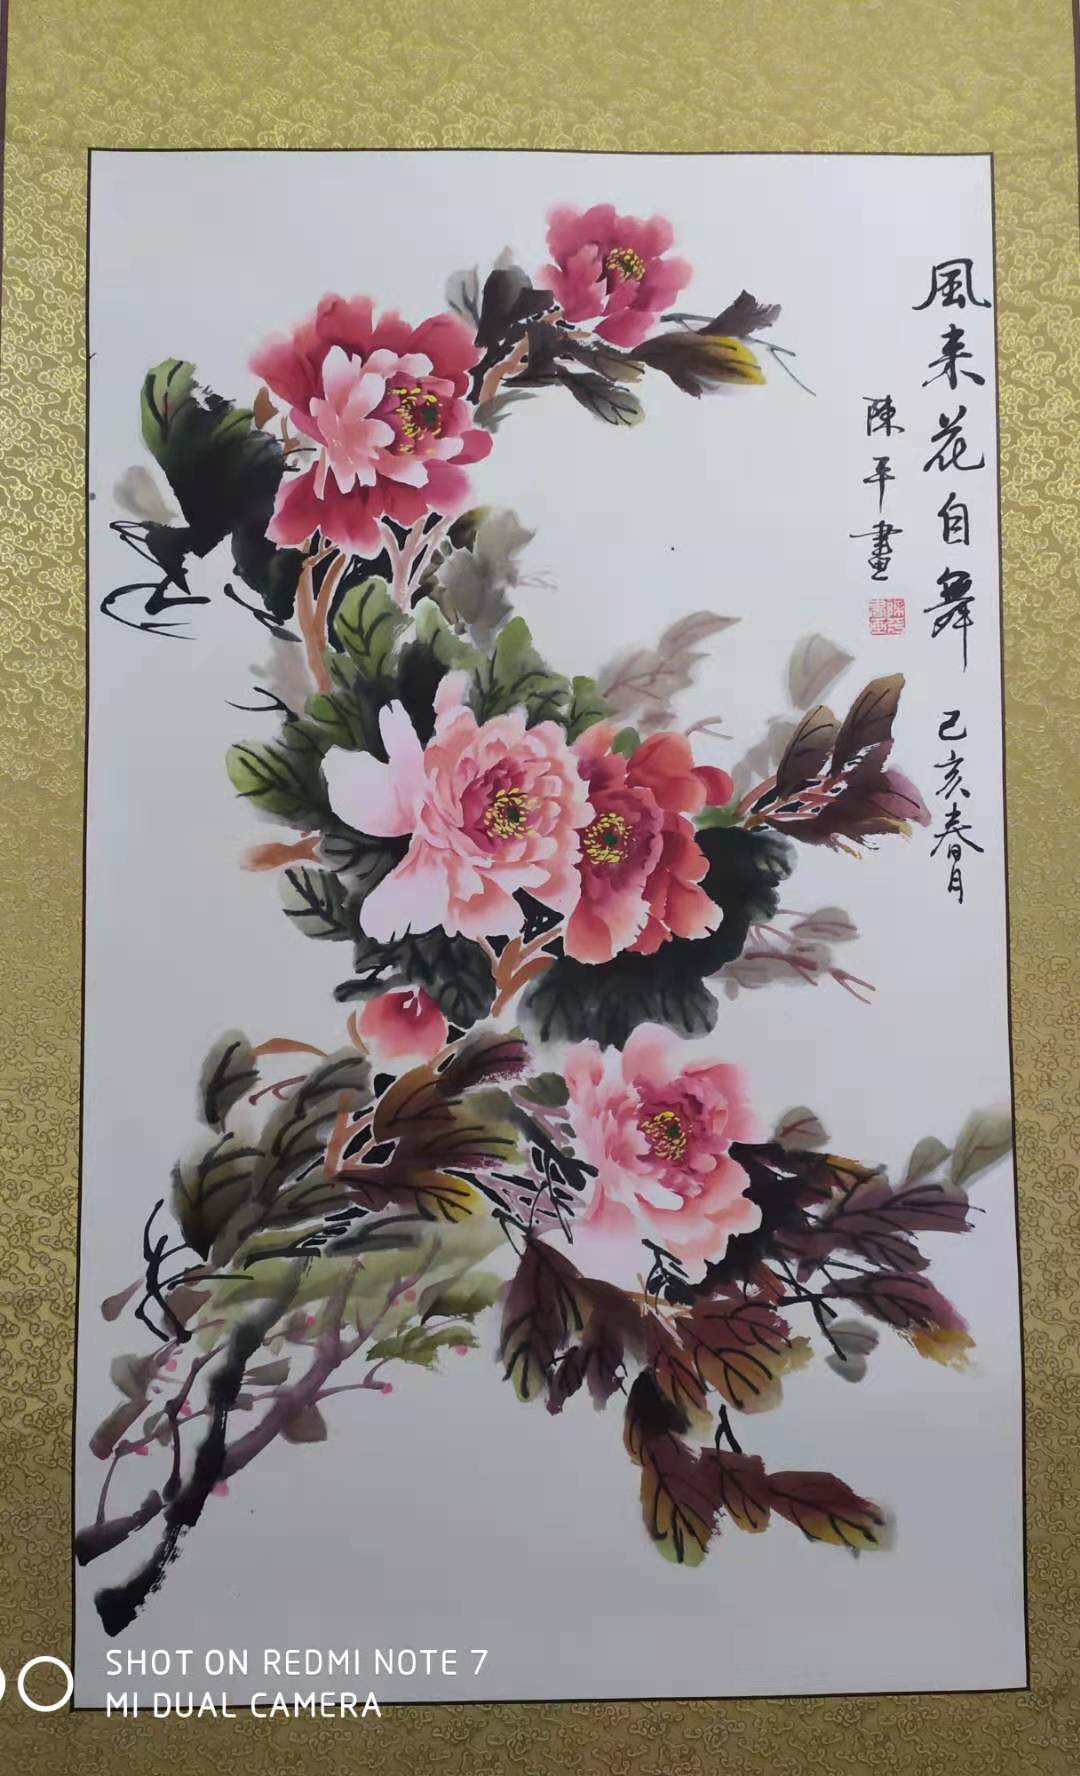 風来花自舞 己亥春月
陳平畫
SHOT ON REDMI NOTE 7
MI DUAL CAMERA